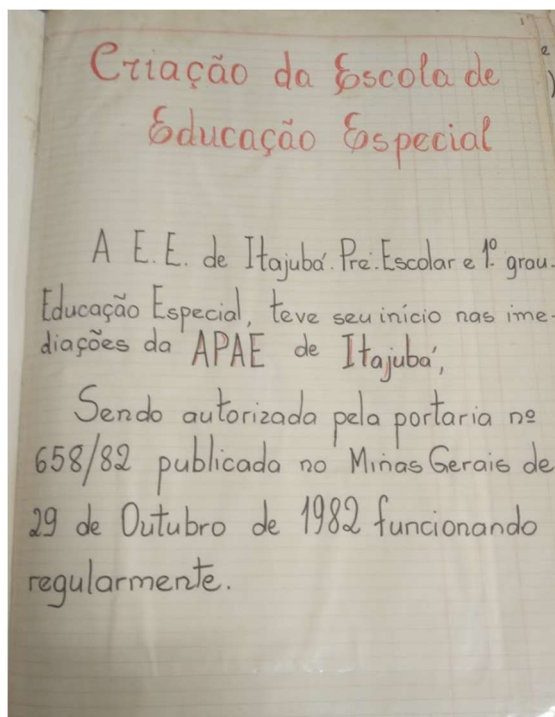 1
2
)
Criação da Escola de
Educação Especial
A E.E. de Itajubá. Pré.Escolar e 1º grau.
Educação Especial, teve seu início nas ime-
diações da APAE de Itajubá,
Sendo autorizada pela portaria nº
658/82 publicada no Minas Gerais de
29 de Outubro de 1982 funcionando
regularmente.